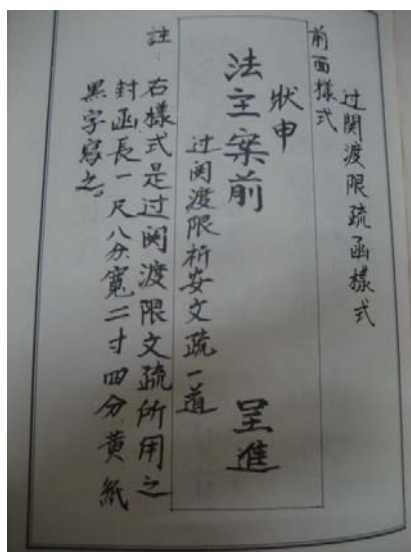 过関渡限疏函樣式
前面樣式
狀申
法主案前 呈進
过関渡限祈安文疏一道
註 右樣式是过関渡限文疏所用之
封函長一尺八分寬二寸四分黃紙
黑字寫之。